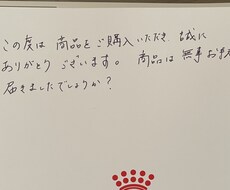 この度は 商品をご購入いただき 誠に
ありがとうございます。 商品は 無事お手元
届きましたでしょうか?